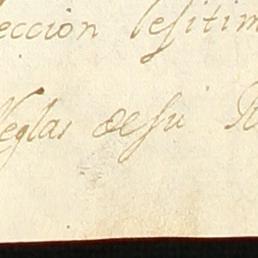 eccion lesitim
Reglas de su R